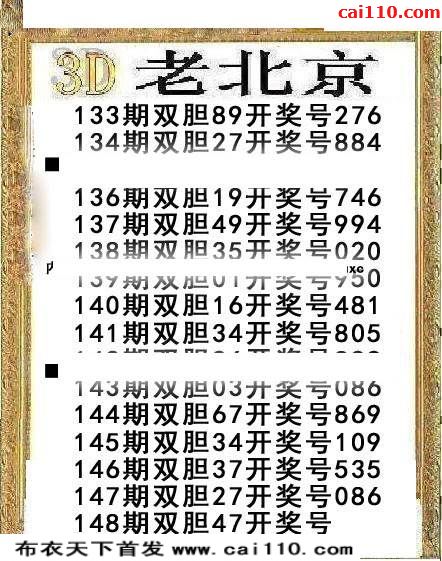 cai110.com
3D 老北京
133期双胆89开奖号276
134期双胆27开奖号884
136期双胆19开奖号746
137期双胆49开奖号994
138期双胆35开奖号020
139期双胆01开奖号950
140期双胆16开奖号481
141期双胆34开奖号805
143期双胆03开奖号086
144期双胆67开奖号869
145期双胆34开奖号109
146期双胆37开奖号535
147期双胆27开奖号086
148期双胆47开奖号
布衣天下首发 www.cai110.com